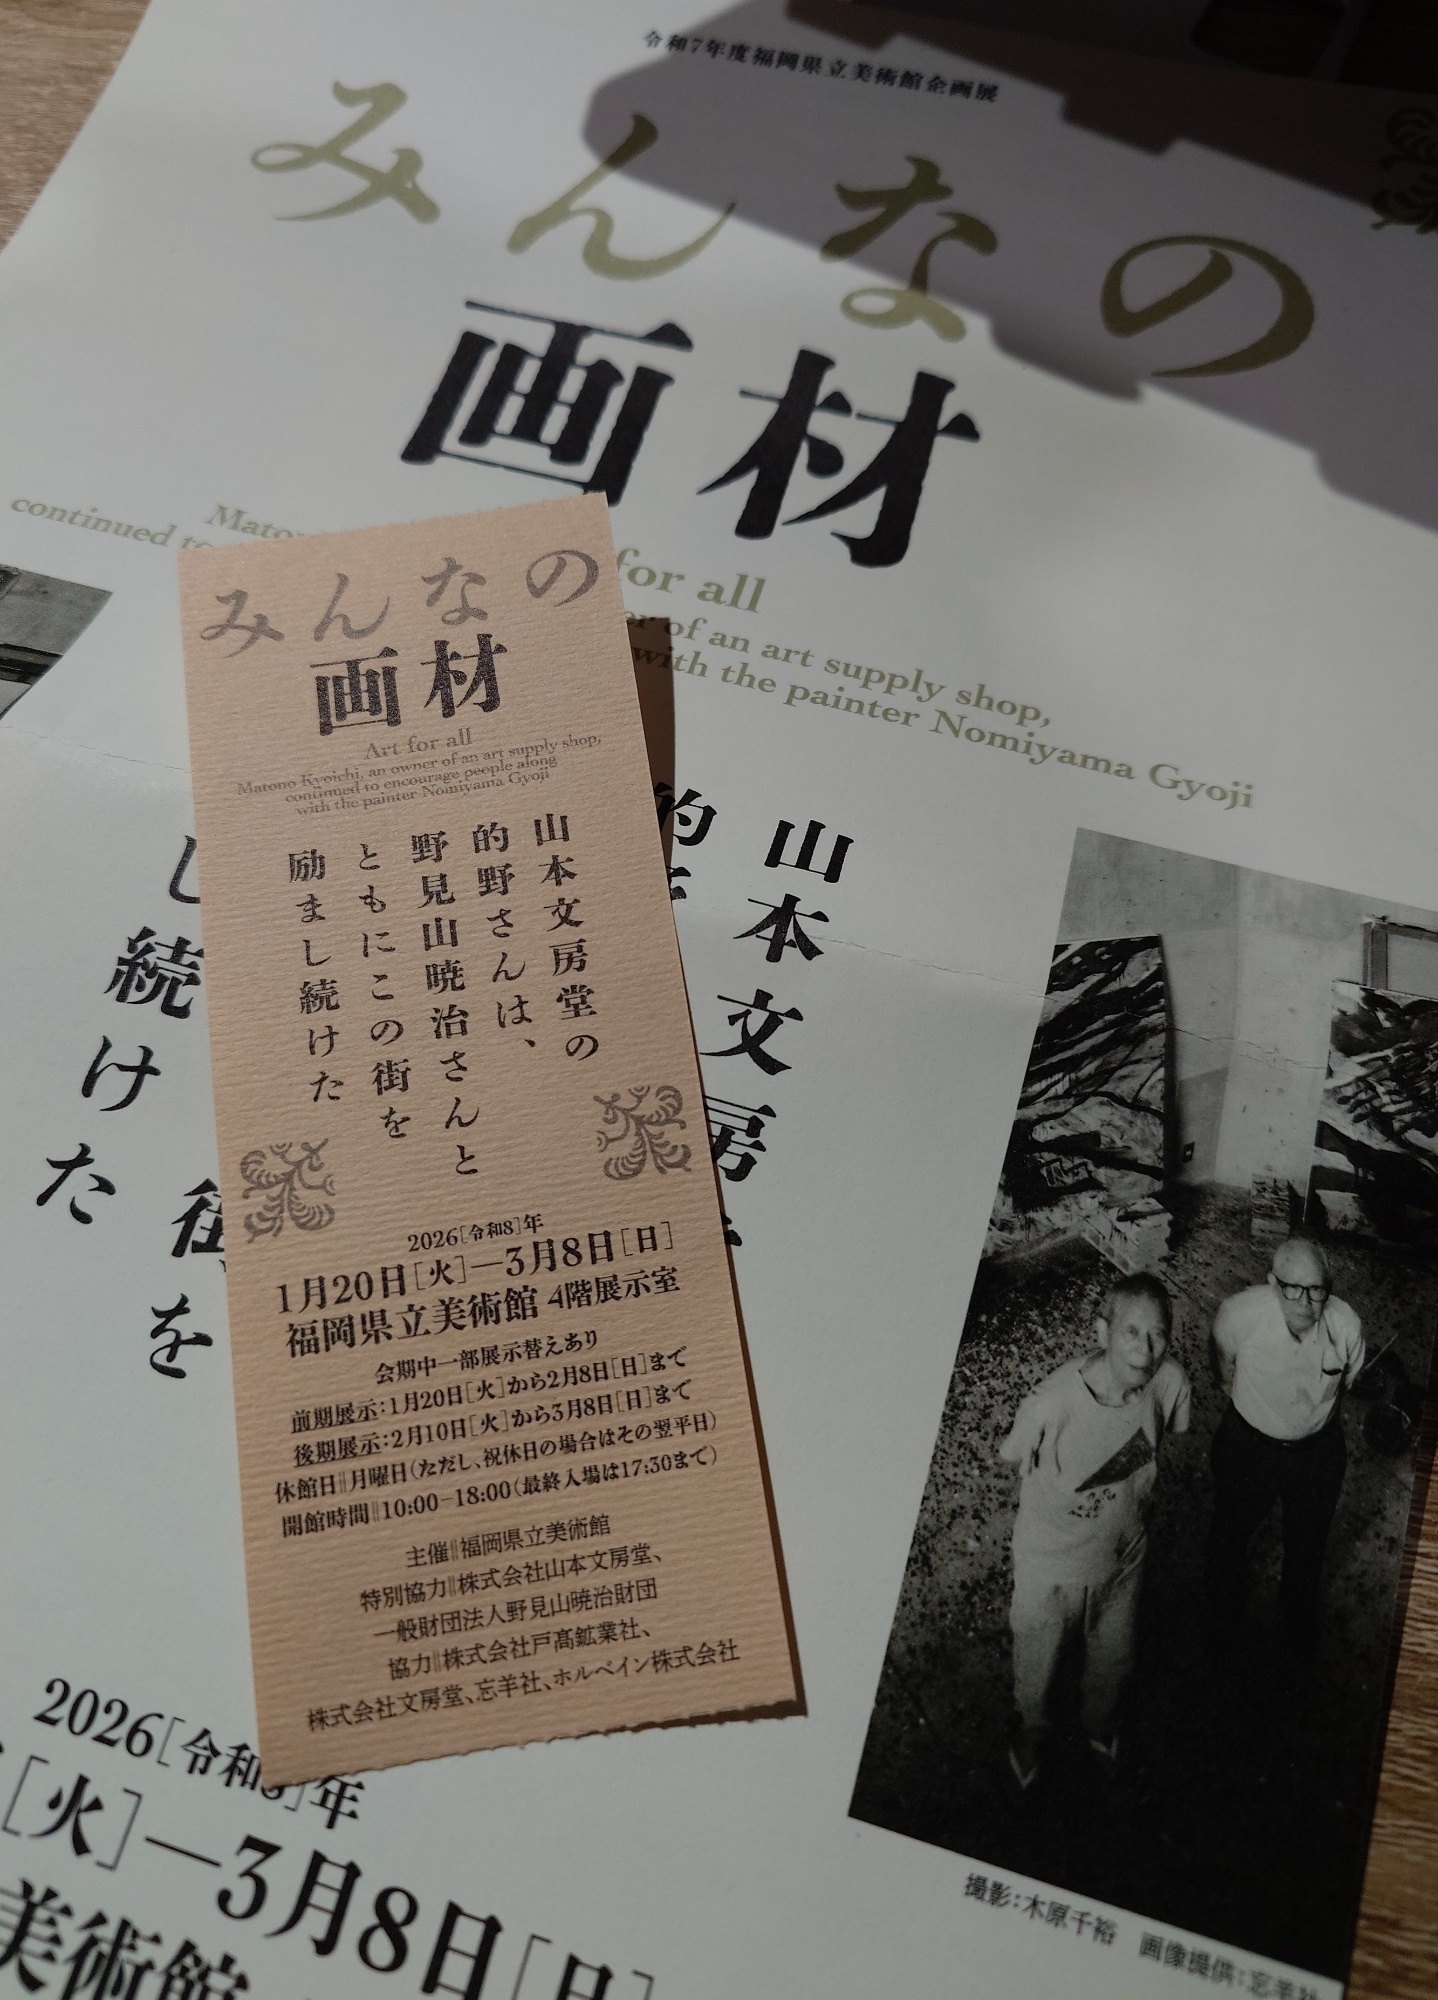 令和7年度福岡県立美術館企画展
みんなの
画材
for all
of an art supply shop,
continued to
with the painter Nomiyama Gyoji
山本文房
的
し続けた
街を
2026［令和8］年
［火］—3月8日［日］
美術館
撮影：木原千裕　画像提供：忘羊社
みんなの
画材
Art for all
Matono Kyoichi, an owner of an art supply shop,
continued to encourage people along
with the painter Nomiyama Gyoji
山本文房堂の
的野さんは、
野見山暁治さんと
ともにこの街を
励まし続けた
2026［令和8］年
1月20日［火］—3月8日［日］
福岡県立美術館 4階展示室
会期中一部展示替えあり
前期展示：1月20日［火］から2月8日［日］まで
後期展示：2月10日［火］から3月8日［日］まで
休館日‖月曜日（ただし、祝休日の場合はその翌平日）
開館時間‖10:00-18:00（最終入場は17:30まで）
主催‖福岡県立美術館
特別協力‖株式会社山本文房堂、
一般財団法人野見山暁治財団
協力‖株式会社戸髙鉱業社、
株式会社文房堂、忘羊社、ホルベイン株式会社